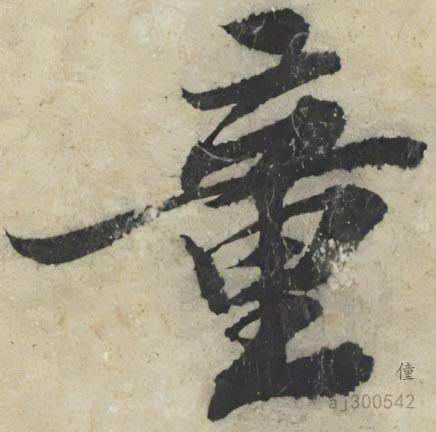 童
僮
aj300542